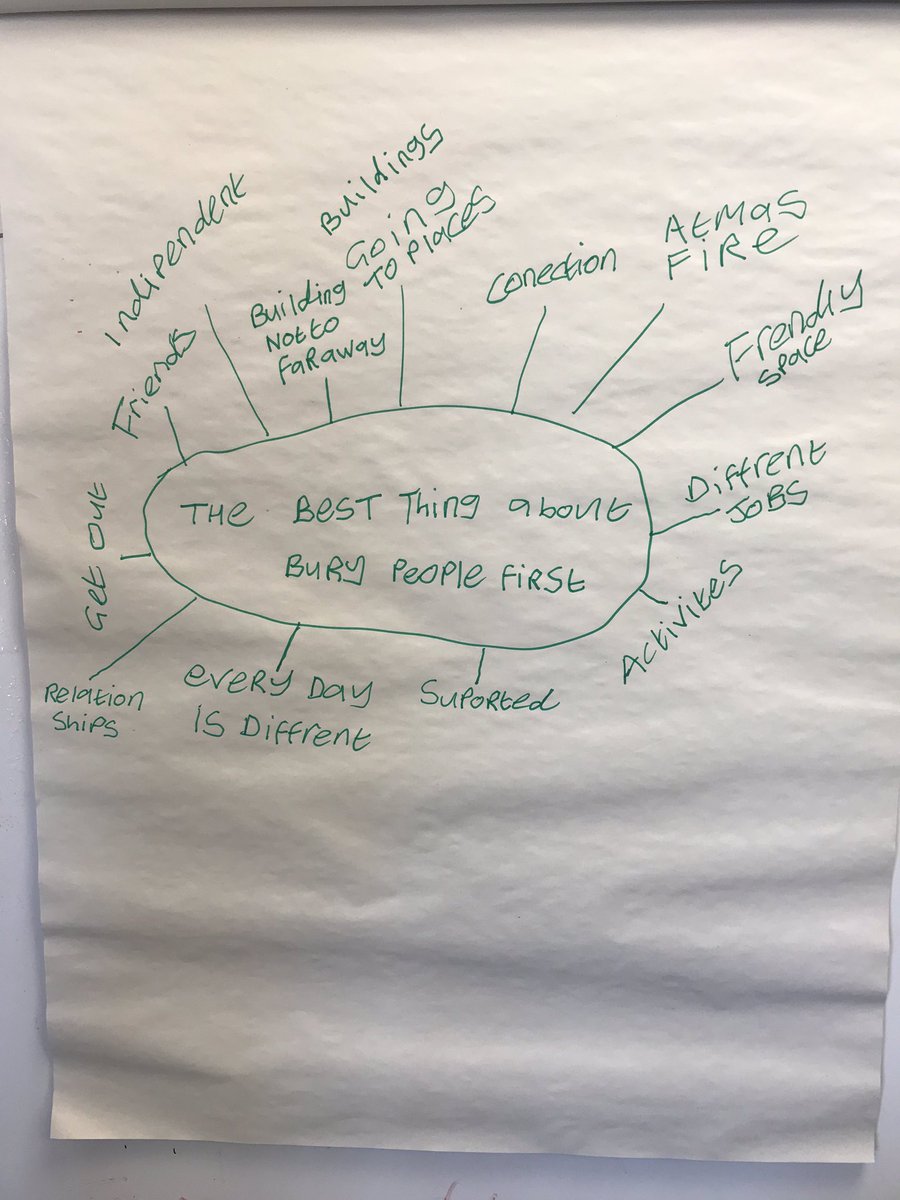 THE BEST THing about
BURY PEOPLE FIRST
Get out
Friends
Indipendent
Building
Not to
FaRaway
Buildings
Going
TO Places
Conection
AtMas
FiRe
Frendly
space
Diffrent
JOBS
Activites
SuPoRted
eveRy Day
IS Diffrent
Relation
Ships